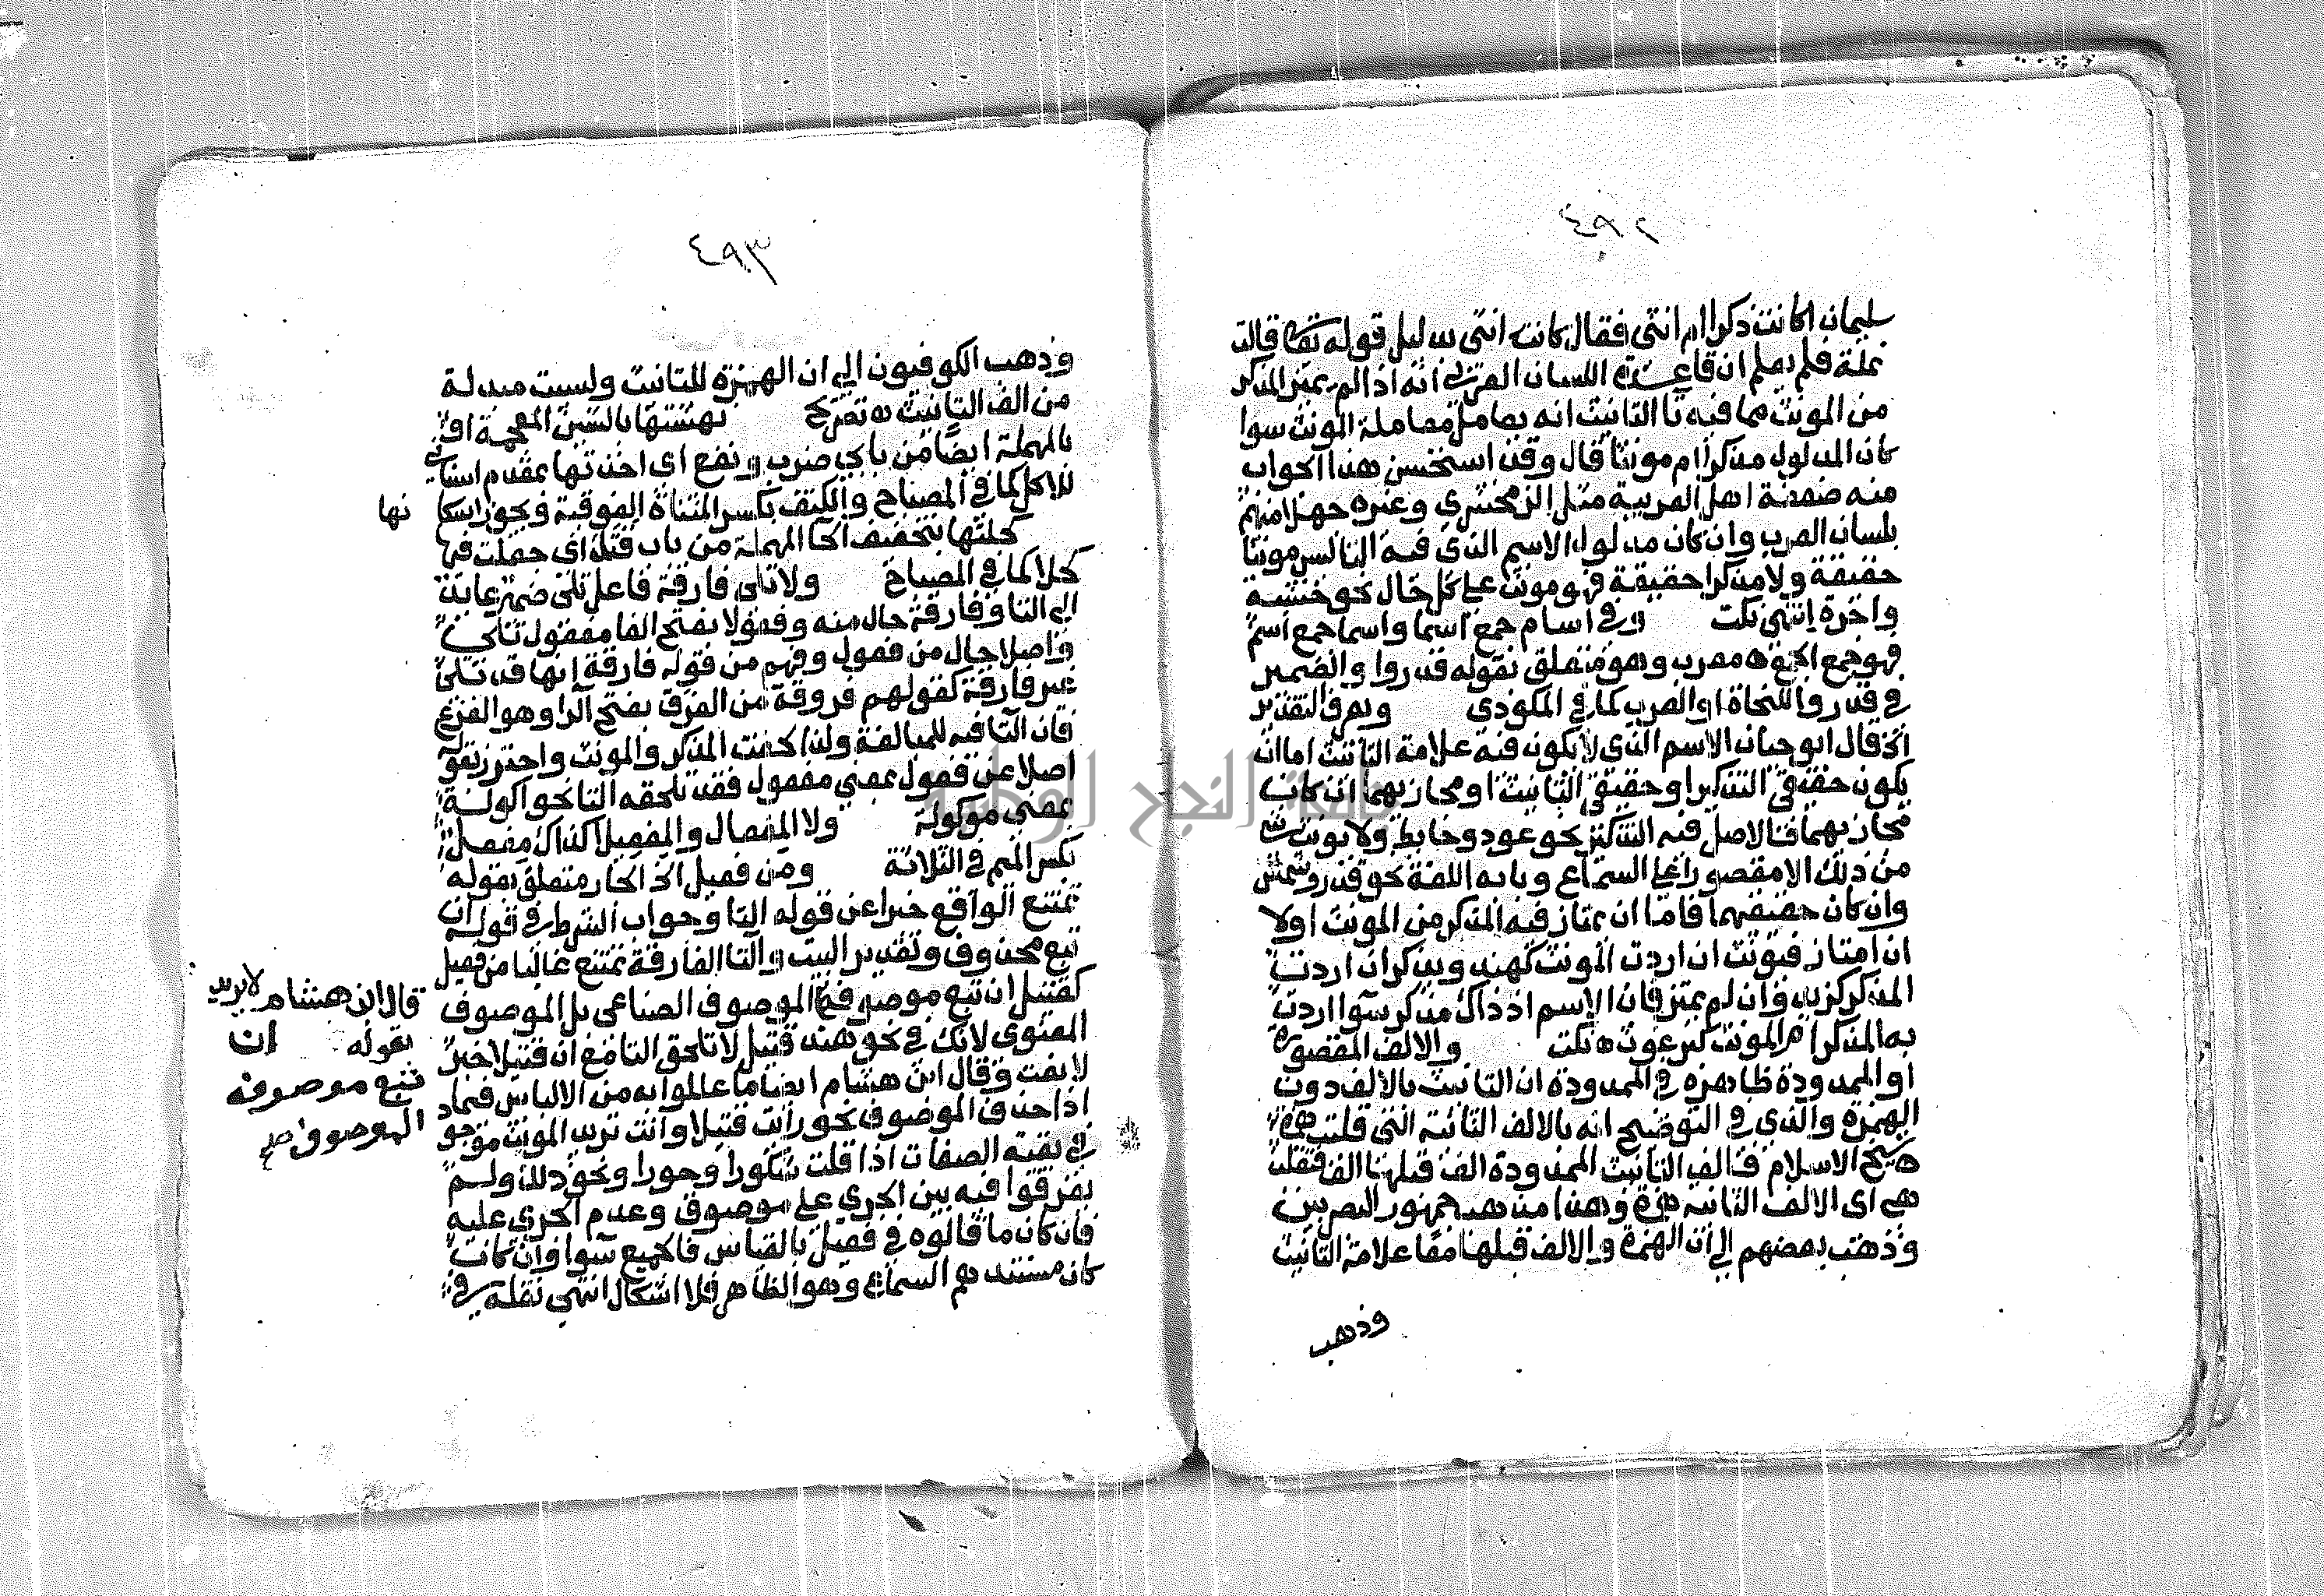 ٤٩٢
سليمان اكانت ذكرا ام انثى فقال كانت انثى بدليل قوله تعالى قالت
نملة فلم يعلم ان قاعدة اللسان العربي انه اذا لم يتميز المذكر
من المونث مما فيه تا التانيث انه يعامل معاملة المونث سوا
كان المدلول مذكرا ام مونثا قال وقد استحسن هذا الجواب
منه ضعفة اهل العربية مثل الزمخشري وغيره جهلا منهم
بلسان العرب وان كان مدلول الاسم الذي فيه التا ليس مونثا
حقيقة ولا مذكرا حقيقة فهو مونث على كل حال نحو خشبة
واجرة انتهى نكت وفي اسام جمع اسما واسما جمع اسم
فهو جمع الجمع معرب وهو متعلق بقوله قدروا والضمير
في قدروا للنحاة او العرب كما في المكودي ويعرف التقدير
الخ قال ابوحيان الاسم الذي لا يكون فيه علامة التانيث اما ان
يكون حقيقي التذكير او حقيقي التانيث او مجازيهما ان كان
مجازيهما فالاصل فيه التذكير نحو عود وحايط ولا يونث شي
من ذلك الا مقصورا على السماع وبابه اللغة نحو قدر وشمس
وان كان حقيقيهما فاما ان يمتاز فيه المذكر من المونث او لا
ان امتاز فيونث ان اردت المونث كهند ويذكر ان اردت
المذكر كزيد وان لم يمتز فان الاسم اذ ذاك مذكر سوا اردت
به المذكر ام المونث كبرغوث نكت والالف المقصورة
او الممدودة ظاهره في الممدودة ان التانيث بالالف دون
الهمزة والذي في التوضيح انه بالالف الثانية التي قلبت همزة
شيخ الاسلام فالف التانيث الممدودة الف قبلها الف فتقلب
هي اى الالف الثانية همزة وهذا مذهب جمهور البصريين
وذهب بعضهم الى ان الهمزة والالف قبلها معا علامة التانيث
وذهب
٤٩٣
وذهب الكوفيون الى ان الهمزة للتانيث وليست مبدلة
من الف التانيث تصريح نهشتها بالشين المعجمة او
بالمهملة ايضا من بابي ضرب ونفع اى اخذتها بمقدم اسناني
للاكل كما في المصباح والكتف بكسر المثناة الفوقية ويجوز اسكا نها
كحلتها بتخفيف الحا المهملة من باب قتل اى جعلت فيها
كحلا كما في المصباح ولا تلى فارقة فاعل تلى ضمير عايد
الى التا وفارقة حال منه وفعولا بفتح الفا مفعول تلى
واصلا حال من فعول وفهم من قوله فارقة انها قد تلى
غير فارقة كقولهم فروقة من الفرق بفتح الرا وهو الفزع
فان التا فيه للمبالغة ولذا لحقت المذكر والمونث واحترز بقوله
اصلا عن فعول بمعنى مفعول فقد تلحقه التا نحو اكولة
بمعنى موكولة ولا المفعال والمفعيلا كذاك مفعل
بكسر الميم في الثلاثة ومن فعيل الخ الجار متعلق بقوله
تمتنع الواقع خبرا عن قوله التا وجواب الشرط في قوله ان
تبع محذوف وتقدير البيت والتا الفارقة تمتنع غالبا من فعيل
كقتيل ان تبع موصوفه الموصوف الصناعي بل الموصوف
المعنوى لانك في نحو هند قتيل لا تلحق التا مع ان قتيلا خبر
لا نعت وقال ابن هشام ايضا ما عللوا به من الالباس فيما
اذا حذف الموصوف نحو رأيت قتيلا وانت تريد المونث موجود
في بقية الصفات اذا قلت شكورا وجورا ونحو ذلك ولم
يفرقوا فيه بين الجرى على موصوف وعدم الجرى عليه
فان كان ما قالوه في فعيل بالقياس فالجميع سوا وان كانت
كان مستندهم السماع وهو الظاهر فلا اشكال انتهى نقله في
قال ابن هشام لا يريد
بقوله ان
تبع موصوفه
الموصوف صح
جامعة النجاح الوطنية